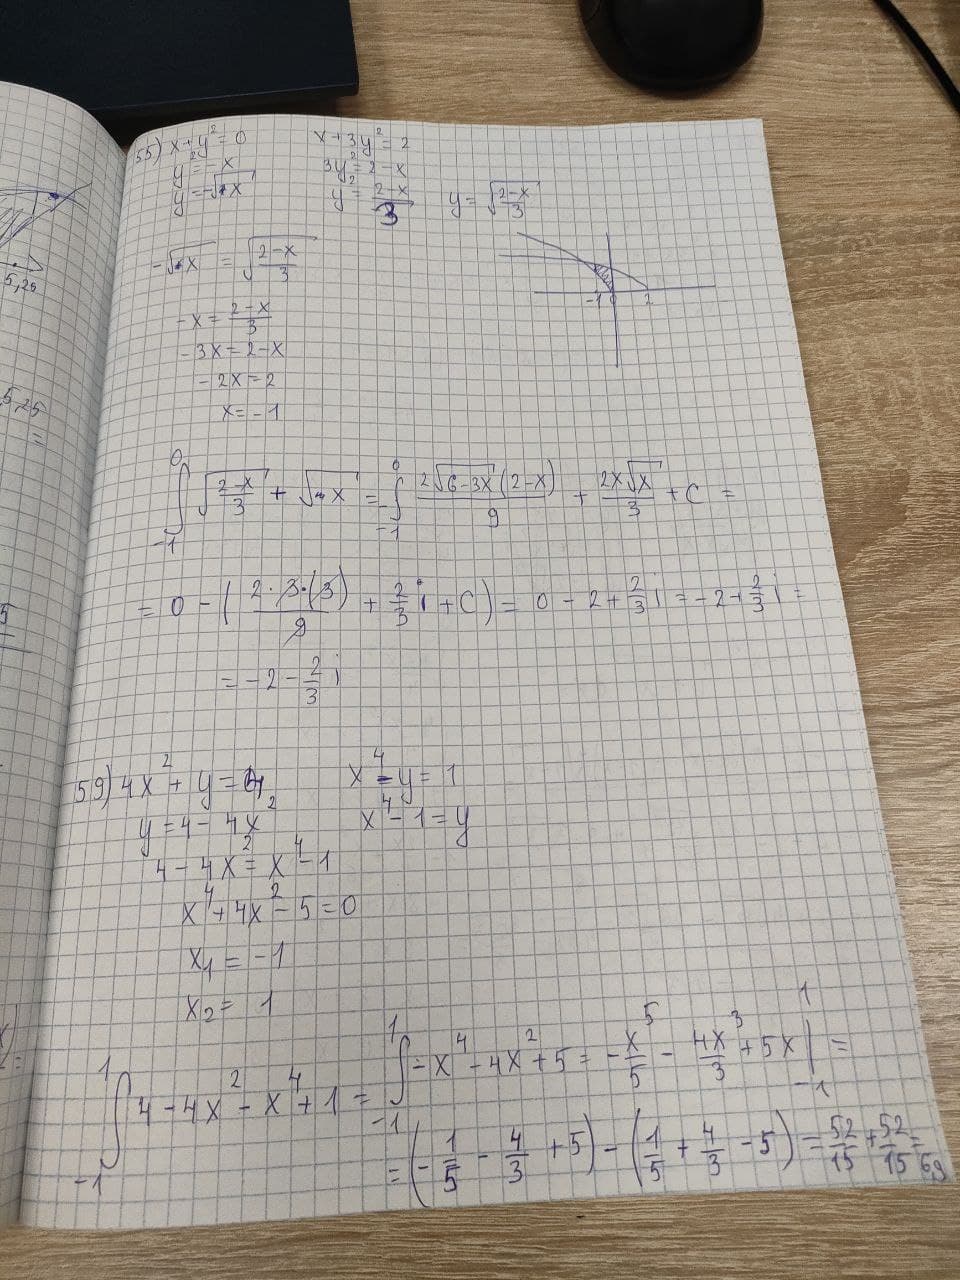 5,25
5,25
=
5
55) x+y²=0 x+3y²=2
y²=-x 3y²=2-x
y=-√x y²=(2-x)/3 y=√((2-x)/3)
-√x = √((2-x)/3)
-1 0 2
-x=(2-x)/3
-3x=2-x
-2x=2
x=-1
∫₋₁⁰ √((2-x)/3) + √x = ∫₋₁⁰ (2√(6-3x)(2-x))/9 + (2x√x)/3 + C =
= 0 - ((2·3·(3))/9 + 2/3 i + C) = 0 - 2 + 2/3 i = -2 + 2/3 i =
= -2 - 2/3 i
59) 4x²+y=4 x⁴-y=1
y=4-4x² x⁴-1=y
4-4x²=x⁴-1
x⁴+4x²-5=0
x₁=-1
x₂=1
∫₋₁¹ 4-4x²-x⁴+1 = ∫₋₁¹ -x⁴-4x²+5 = -x⁵/5 - 4x³/3 + 5x |₋₁¹ =
= (-1/5 - 4/3 + 5) - (1/5 + 4/3 - 5) = 52/15 + 52/15 =